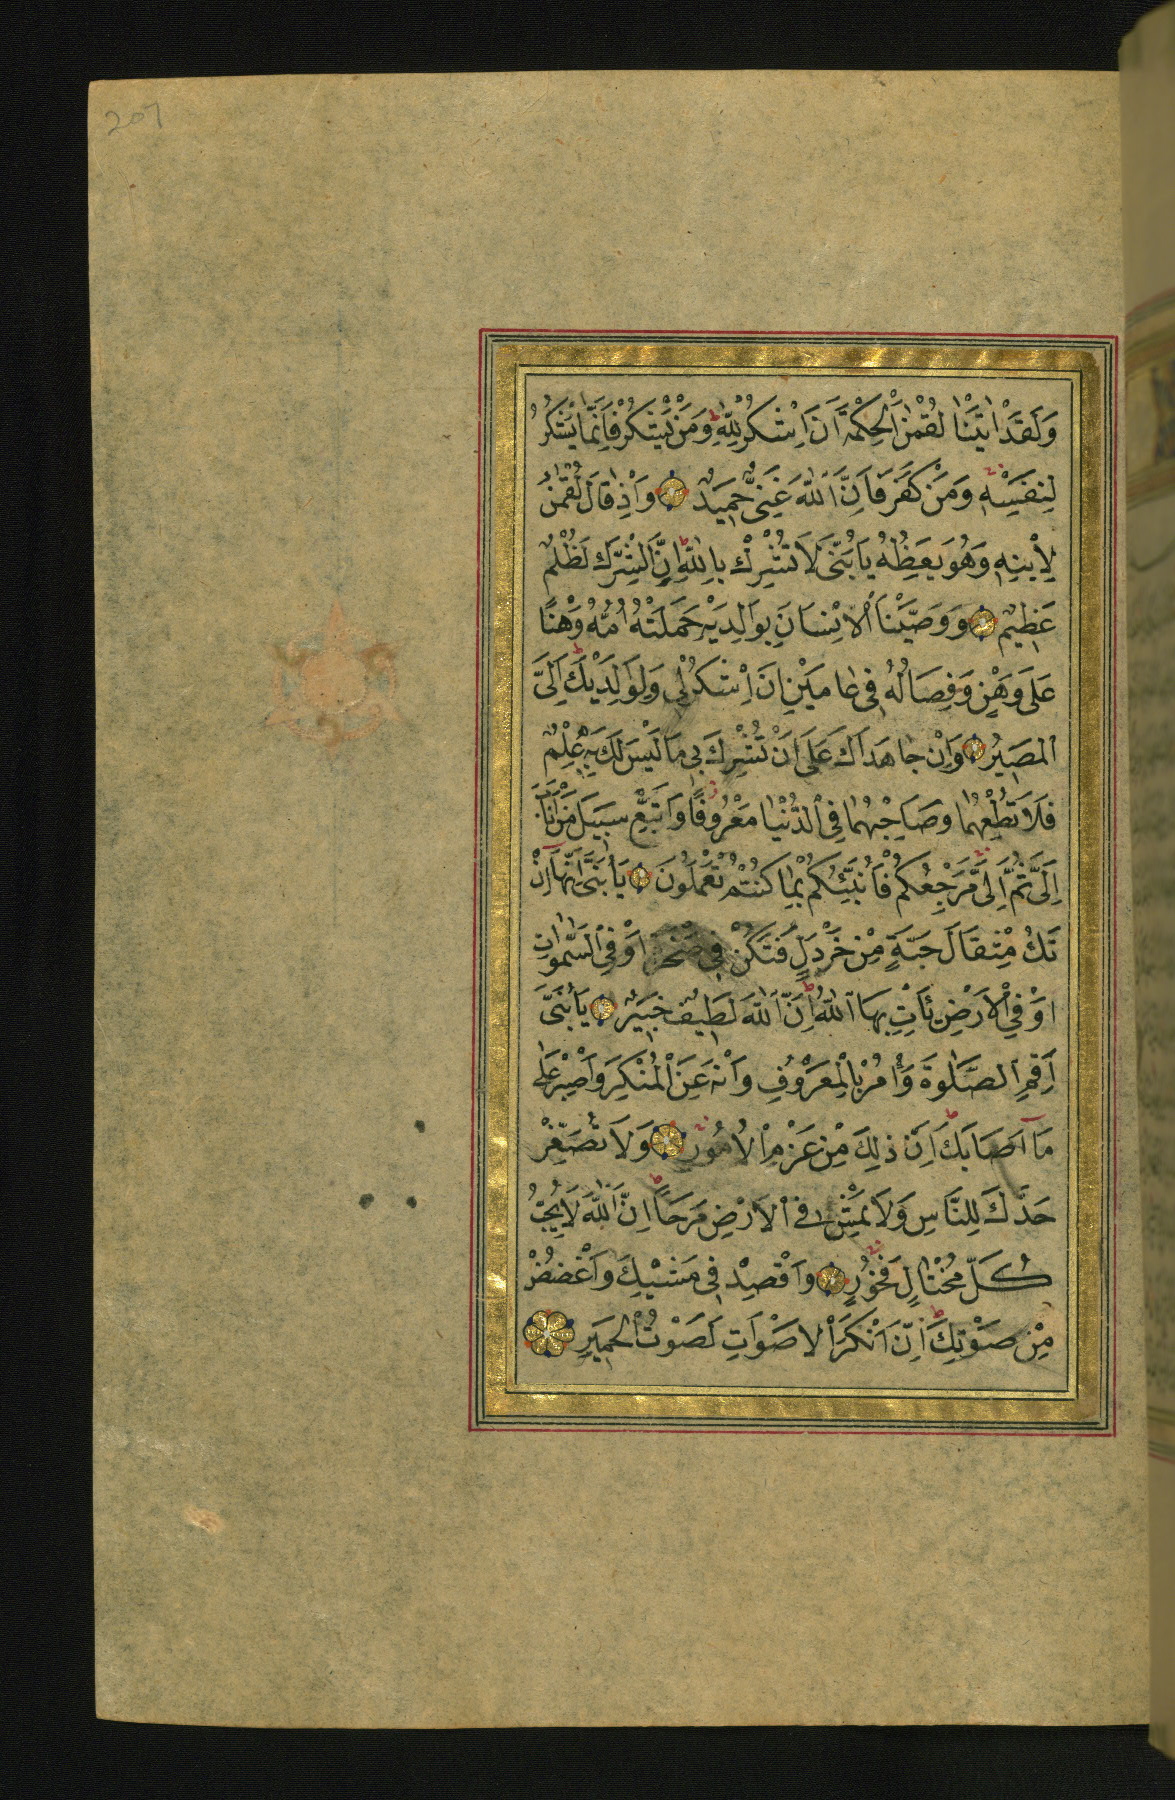 207
وَلَقَدْ اٰتَيْنَا لُقْمٰنَ الْحِكْمَةَ اَنِ اشْكُرْ لِلّٰهِ وَمَنْ يَشْكُرْ فَاِنَّمَا يَشْكُرُ
لِنَفْسِهٖ وَمَنْ كَفَرَ فَاِنَّ اللّٰهَ غَنِىٌّ حَمِيدٌ وَاِذْ قَالَ لُقْمٰنُ
لِابْنِهٖ وَهُوَ يَعِظُهُ يَابُنَىَّ لَا تُشْرِكْ بِاللّٰهِ اِنَّ الشِّرْكَ لَظُلْمٌ
عَظِيمٌ وَوَصَّيْنَا الْاِنْسَانَ بِوَالِدَيْهِ حَمَلَتْهُ اُمُّهُ وَهْنًا
عَلَى وَهْنٍ وَفِصَالُهُ فِى عَامَيْنِ اَنِ اشْكُرْ لِى وَلِوَالِدَيْكَ اِلَىَّ
الْمَصِيرُ وَاِنْ جَاهَدَاكَ عَلَى اَنْ تُشْرِكَ بِى مَا لَيْسَ لَكَ بِهٖ عِلْمٌ
فَلَا تُطِعْهُمَا وَصَاحِبْهُمَا فِى الدُّنْيَا مَعْرُوفًا وَاتَّبِعْ سَبِيلَ مَنْ اَنَابَ
اِلَىَّ ثُمَّ اِلَىَّ مَرْجِعُكُمْ فَاُنَبِّئُكُمْ بِمَا كُنْتُمْ تَعْمَلُونَ يَابُنَىَّ اِنَّهَا اِنْ
تَكُ مِثْقَالَ حَبَّةٍ مِنْ خَرْدَلٍ فَتَكُنْ فِى صَخْرَةٍ اَوْ فِى السَّمٰوَاتِ
اَوْ فِى الْاَرْضِ يَأْتِ بِهَا اللّٰهُ اِنَّ اللّٰهَ لَطِيفٌ خَبِيرٌ يَابُنَىَّ
اَقِمِ الصَّلٰوةَ وَأْمُرْ بِالْمَعْرُوفِ وَانْهَ عَنِ الْمُنْكَرِ وَاصْبِرْ عَلٰى
مَا اَصَابَكَ اِنَّ ذٰلِكَ مِنْ عَزْمِ الْاُمُورِ وَلَا تُصَعِّرْ
خَدَّكَ لِلنَّاسِ وَلَا تَمْشِ فِى الْاَرْضِ مَرَحًا اِنَّ اللّٰهَ لَا يُحِبُّ
كُلَّ مُخْتَالٍ فَخُورٍ وَاقْصِدْ فِى مَشْيِكَ وَاغْضُضْ
مِنْ صَوْتِكَ اِنَّ اَنْكَرَ الْاَصْوَاتِ لَصَوْتُ الْحَمِيرِ